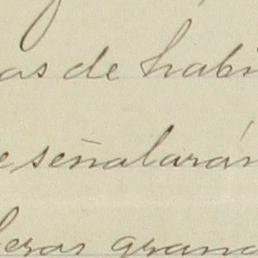 as de habi
e señalarán
leras grand